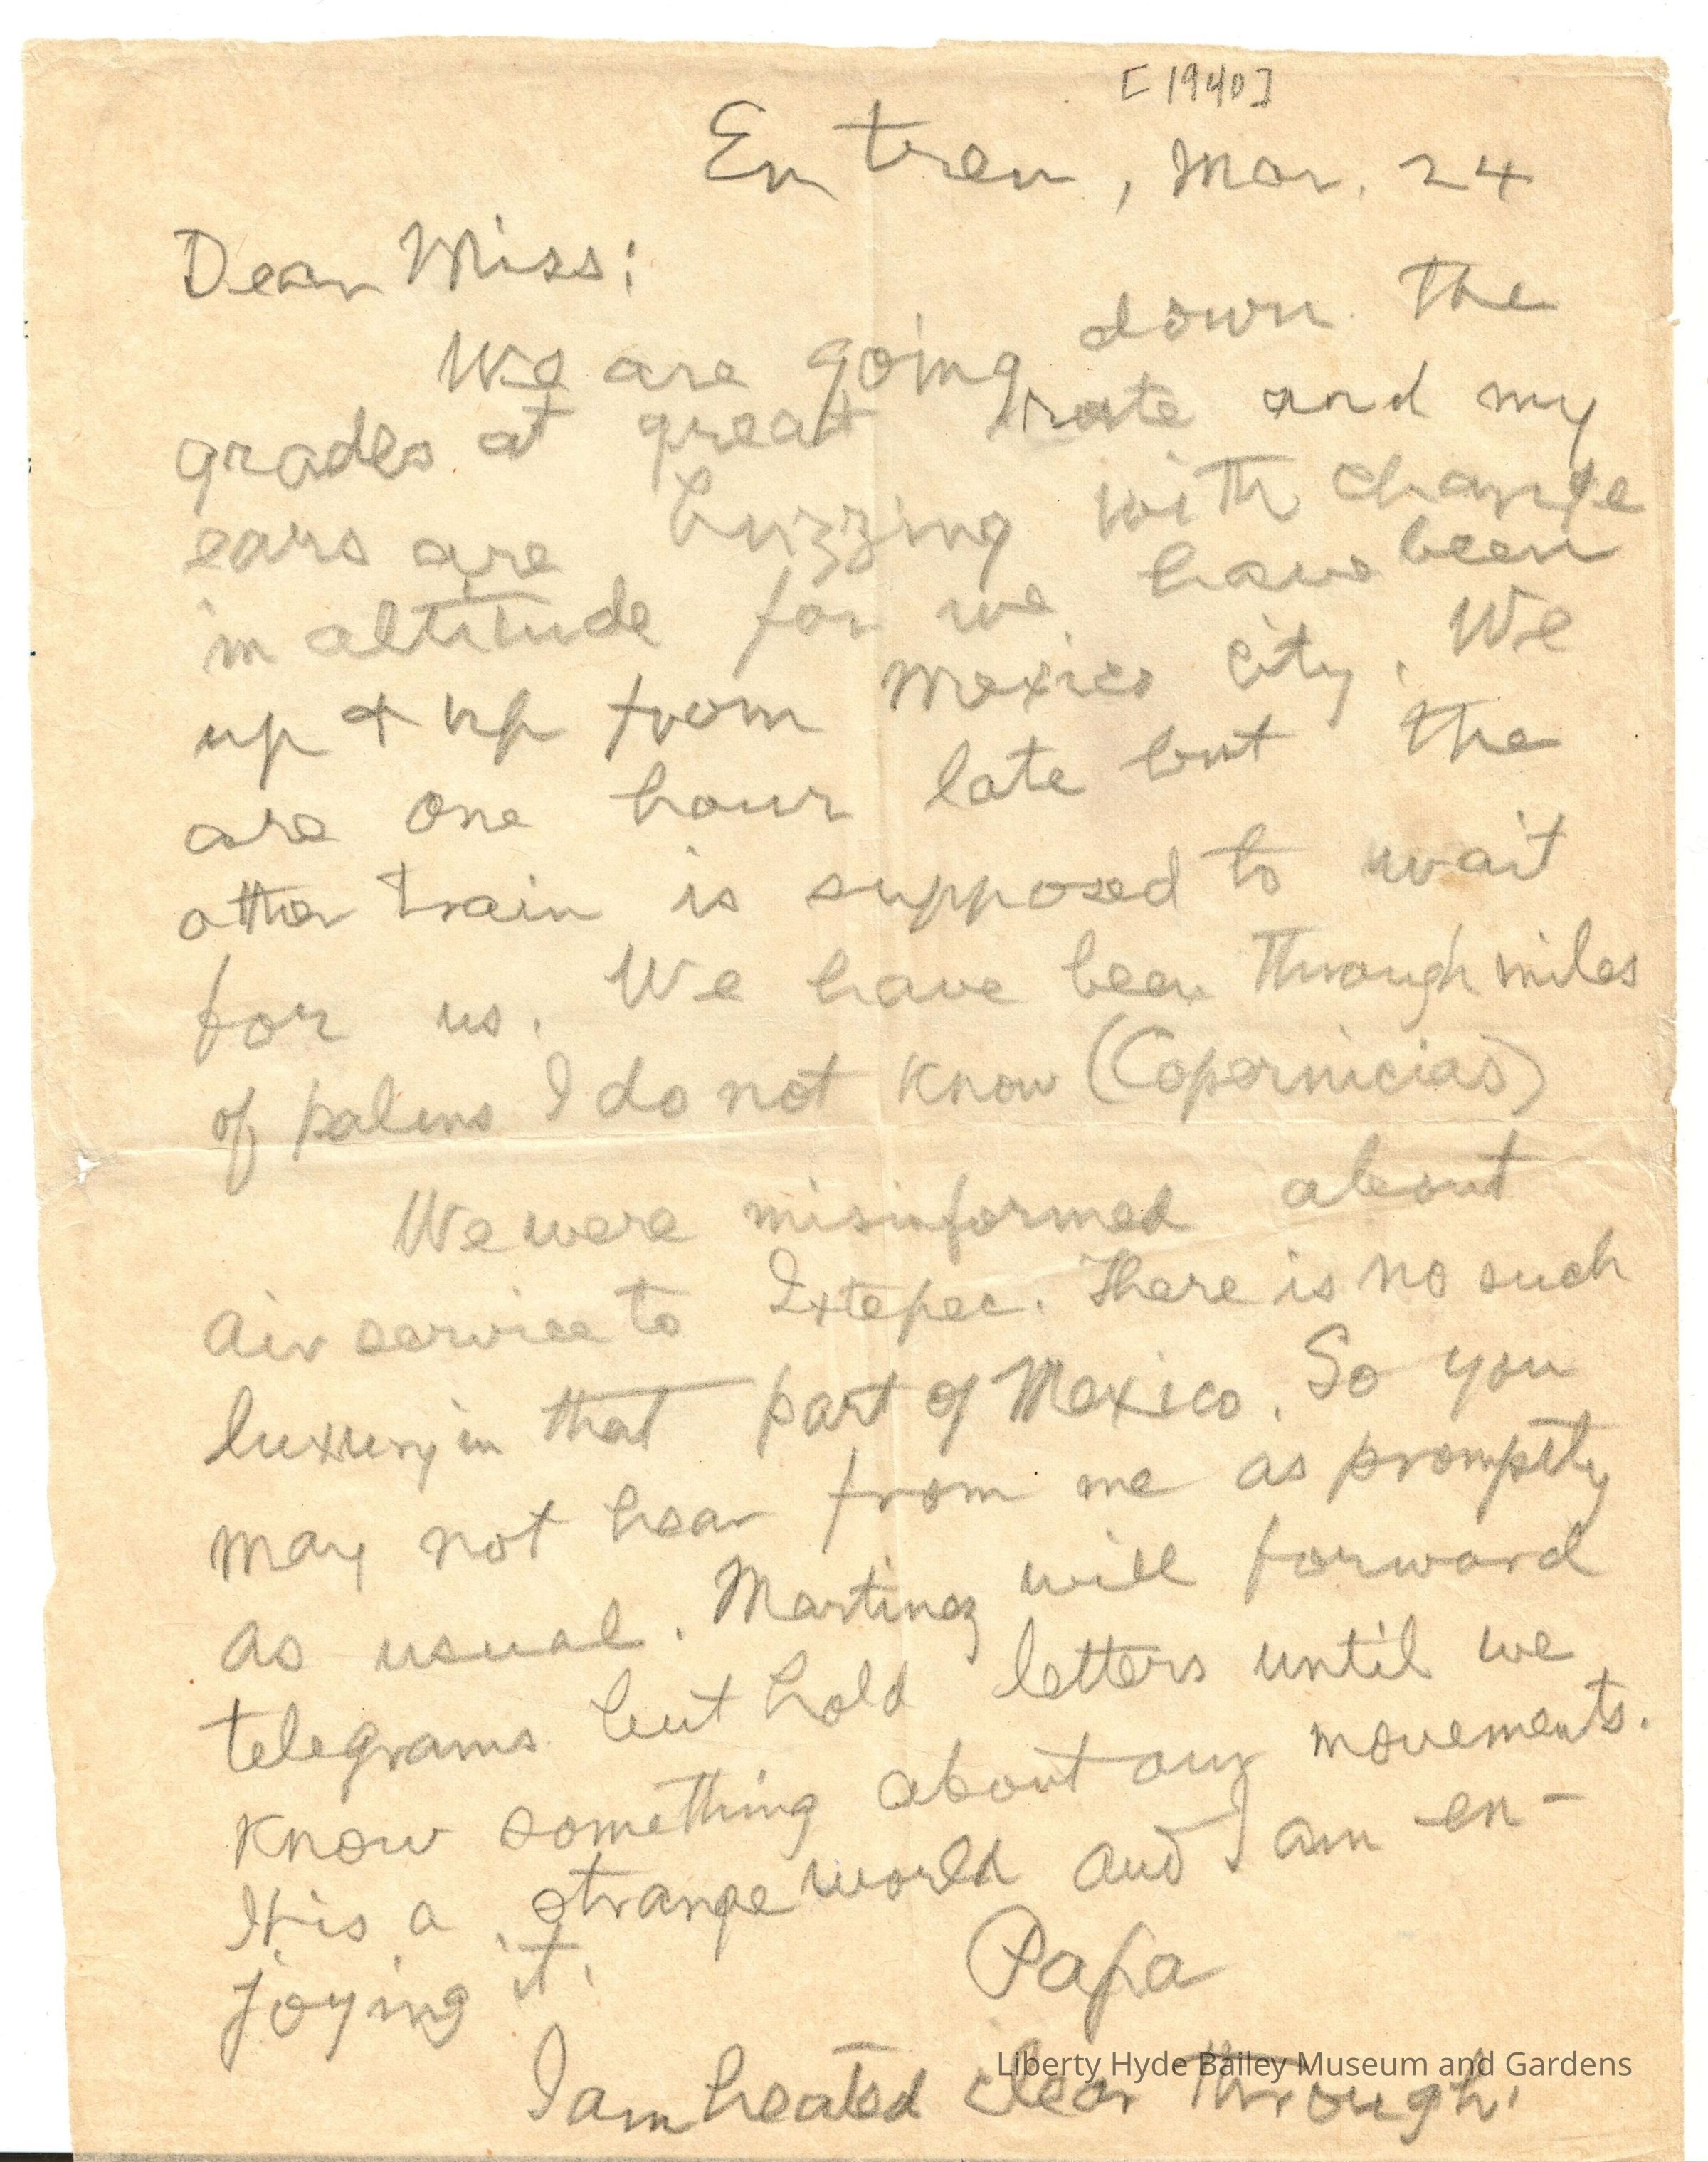 [1940]
En tren, Mar. 24
Dear Miss:
We are going down the
grades at great rate and my
ears are buzzing with change
in altitude for we have been
up & up from Mexico City. We
are one hour late but the
other train is supposed to wait
for us. We have been through miles
of palms I do not know (Copernicias)
We were misinformed about
air service to Ixtepec. There is no such
luxury in that part of Mexico. So you
may not hear from me as promptly
as usual. Martinez will forward
telegrams but hold letters until we
know something about our movements.
It is a strange world and I am en-
joying it.
Papa
I am heated clear through.
Liberty Hyde Bailey Museum and Gardens